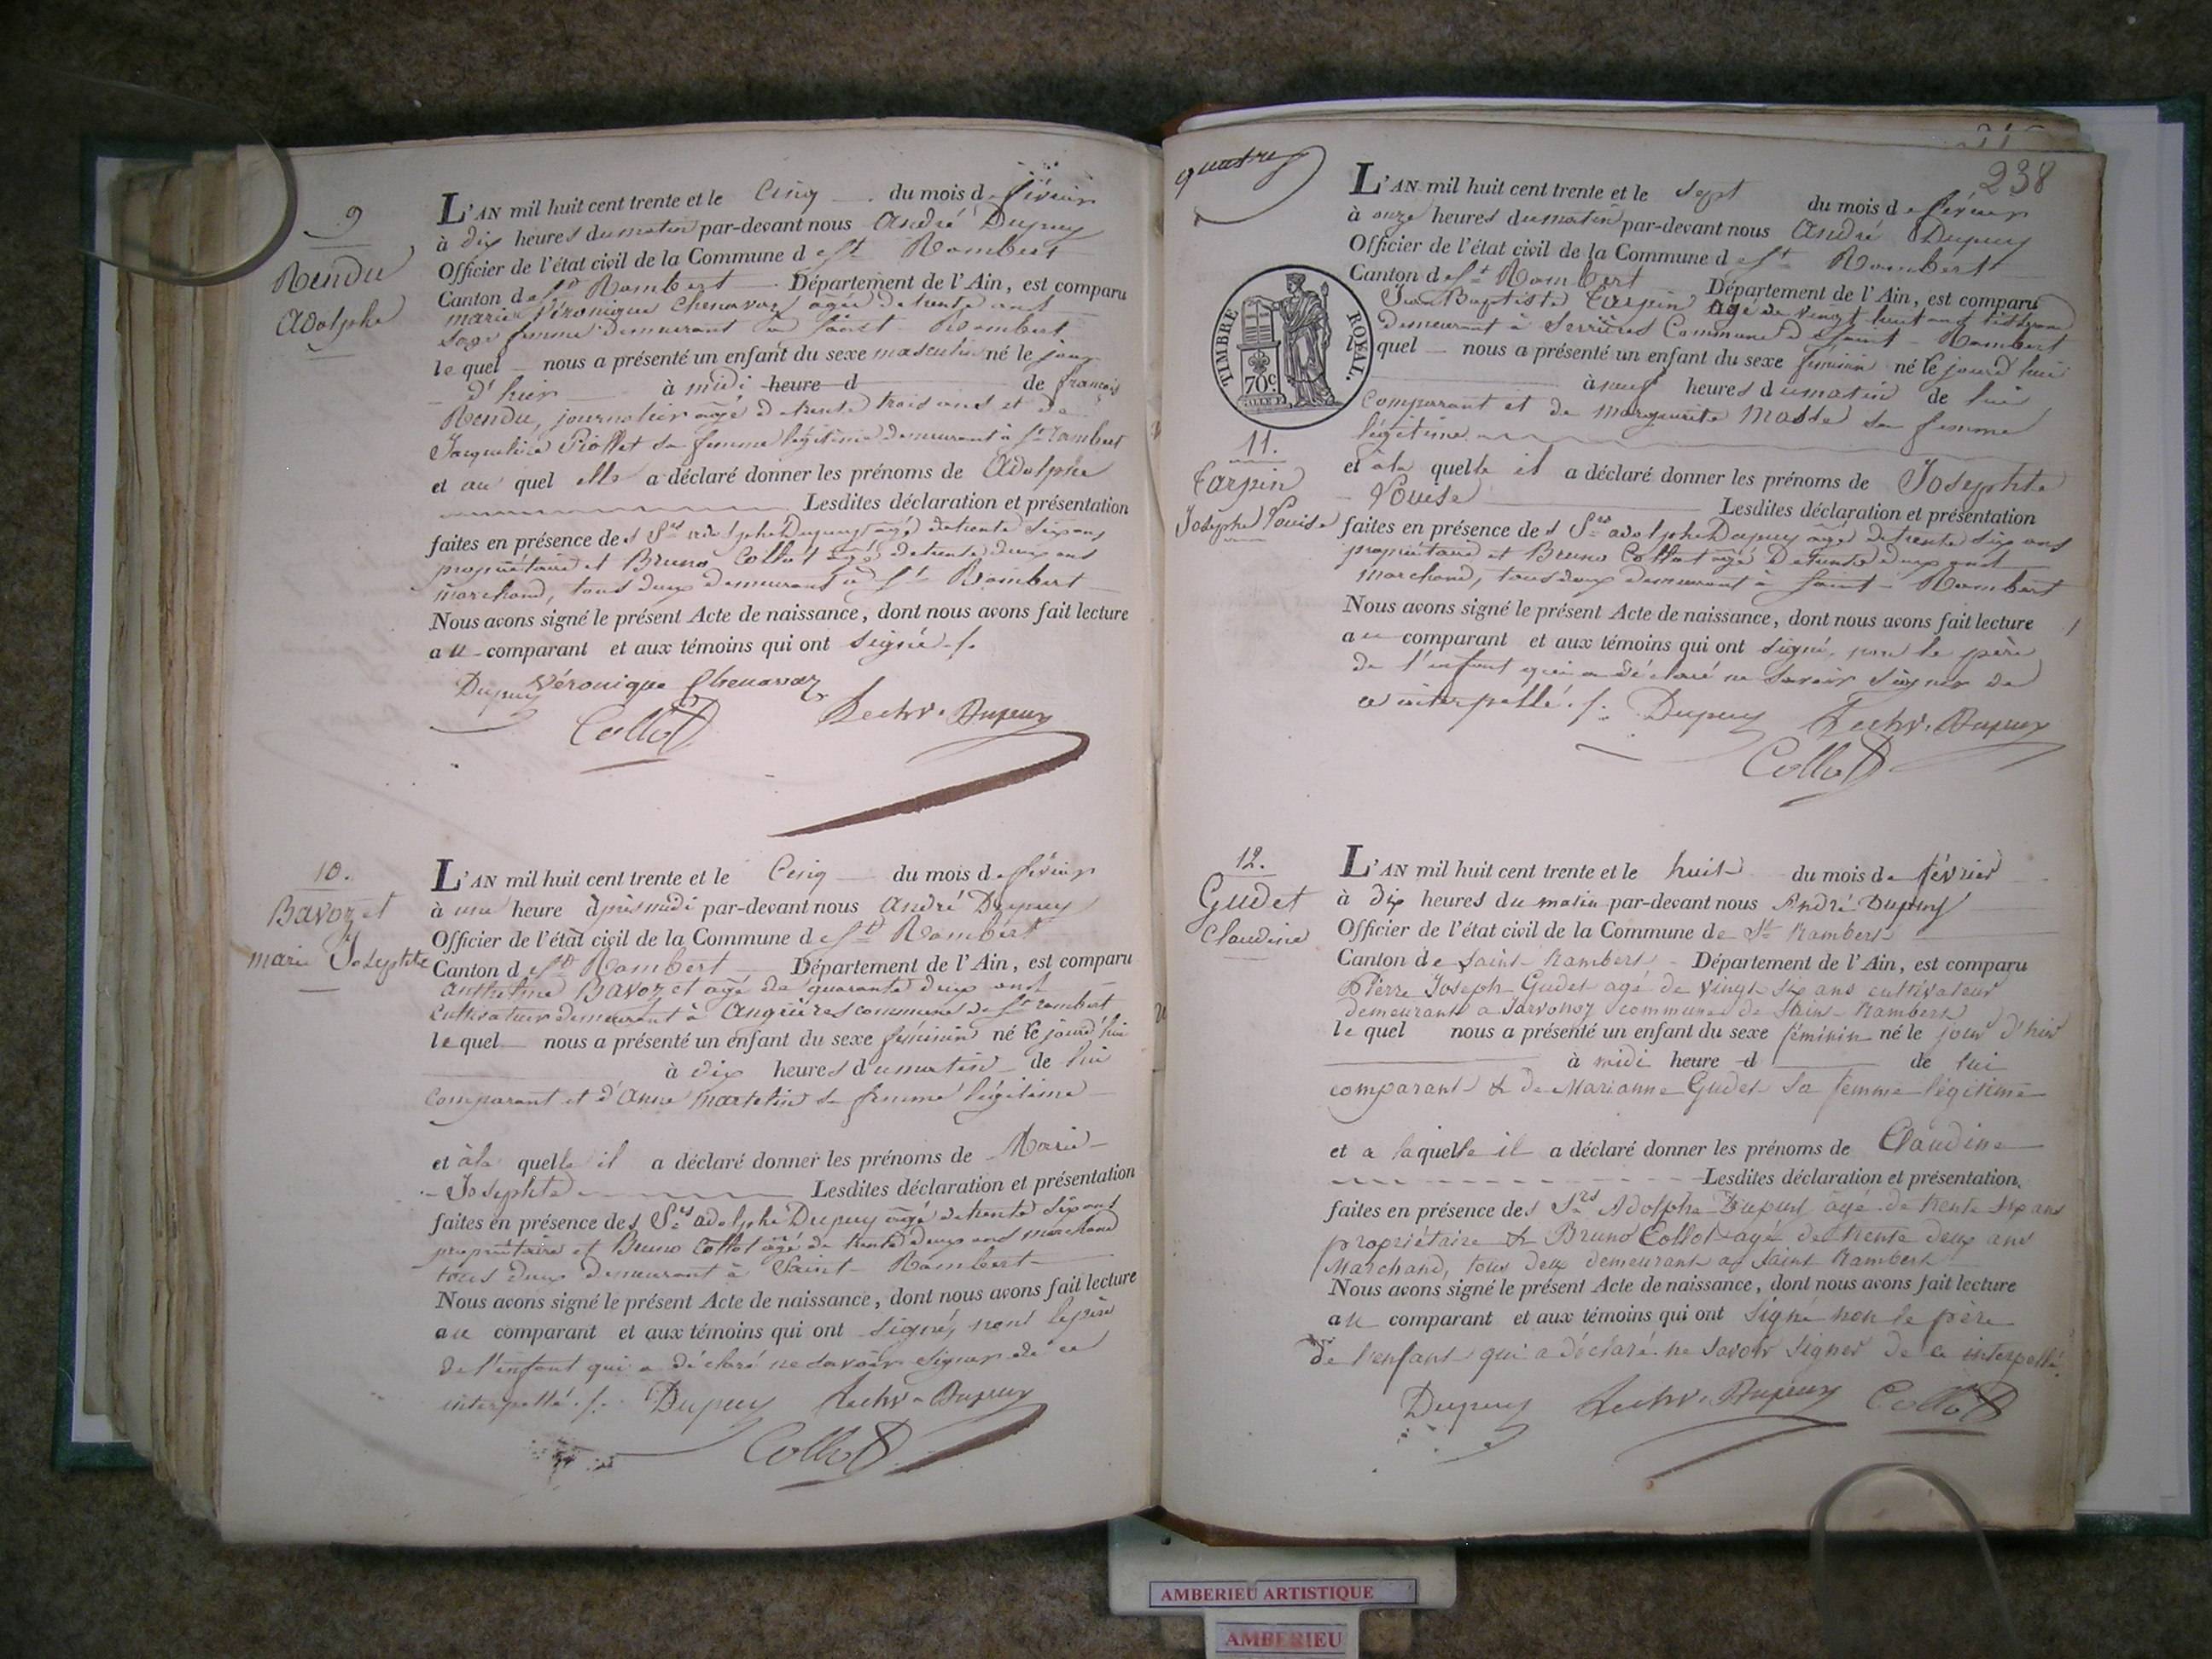 9
Rendu
Adolphe
L'AN mil huit cent trente et le Cinq du mois de février
à dix heures du matin par-devant nous André Dupuy
Officier de l'état civil de la Commune de St Rambert
Canton de St Rambert Département de l'Ain, est comparu
marie Véronique Chenavaz agée de trente ans
sage femme demeurant à Saint Rambert
le quel nous a présenté un enfant du sexe masculin né le jour
d'hier à midi heure d de françois
Rendu, journalier agé de trente trois ans et de
Jacqueline Piollet sa femme légitime demeurant à St Rambert
et au quel elle a déclaré donner les prénoms de Adolphe
Lesdites déclaration et présentation
faites en présence des Srs adolphe Dupuy agé de trente six ans
propriétaire et Bruno Collot agé de trente deux ans
marchand, tous deux demeurant à St Rambert
Nous avons signé le présent Acte de naissance, dont nous avons fait lecture
au comparant et aux témoins qui ont signé ./.
Dupuy Véronique Chenavaz
Collot Dupuy
10.
Bavozet
marie Josephte
L'AN mil huit cent trente et le Cinq du mois de février
à une heure après midi par-devant nous André Dupuy
Officier de l'état civil de la Commune de St Rambert
Canton de St Rambert Département de l'Ain, est comparu
anthelme Bavozet agé de quarante deux ans
cultivateur demeurant à Angrières commune de St rambert
le quel nous a présenté un enfant du sexe féminin né le jourd'hui
à dix heures du matin de lui
comparant et d'Anne martelin sa femme légitime
et à la quelle il a déclaré donner les prénoms de Marie
Josephte Lesdites déclaration et présentation
faites en présence des Srs adolphe Dupuy agé de trente six ans
propriétaire et Bruno Collot agé de trente deux ans marchand
tous deux demeurant à Saint Rambert
Nous avons signé le présent Acte de naissance, dont nous avons fait lecture
au comparant et aux témoins qui ont signé, non le père
de l'enfant qui a déclaré ne savoir signer de ce
interpellé ./. Dupuy Dupuy
Collot
quatre
238
TIMBRE ROYAL.
70c
11.
Tarpin
Josephe Louise
L'AN mil huit cent trente et le sept du mois de février
à onze heures du matin par-devant nous André Dupuy
Officier de l'état civil de la Commune de St Rambert
Canton de St Rambert Département de l'Ain, est comparu
Jean Baptiste Tarpin agé de vingt huit ans tisserand
demeurant à Serrières Commune de Saint Rambert
le quel nous a présenté un enfant du sexe féminin né le jourd'hui
à neuf heures du matin de lui
comparant et de marguerite Masse sa femme
légitime
et à la quelle il a déclaré donner les prénoms de Josephte
Louise Lesdites déclaration et présentation
faites en présence des Srs adolphe Dupuy agé de trente six ans
propriétaire et Bruno Collot agé de trente deux ans
marchand, tous deux demeurant à Saint Rambert
Nous avons signé le présent Acte de naissance, dont nous avons fait lecture
au comparant et aux témoins qui ont signé, non le père
de l'enfant qui a déclaré ne savoir signer de
ce interpellé ./. Dupuy Dupuy
Collot
12.
Gudet
Claudine
L'AN mil huit cent trente et le huit du mois de février
à dix heures du matin par-devant nous André Dupuy
Officier de l'état civil de la Commune de St Rambert
Canton de Saint Rambert Département de l'Ain, est comparu
Pierre Joseph Gudet agé de vingt six ans cultivateur
demeurant a Javornoz commune de Saint Rambert
le quel nous a présenté un enfant du sexe féminin né le jour d'hier
à midi heure d de lui
comparant & de Marianne Gudet sa femme légitime
et a laquelle il a déclaré donner les prénoms de Claudine
Lesdites déclaration et présentation
faites en présence des Srs Adolphe Dupuy âgé de trente six ans
propriétaire & Bruno Collot agé de trente deux ans
Marchand, tous deux demeurant a Saint Rambert
Nous avons signé le présent Acte de naissance, dont nous avons fait lecture
au comparant et aux témoins qui ont signé non le père
de l'enfant qui a déclaré ne savoir signer de ce interpellé.
Dupuy Dupuy Collot
AMBERIEU ARTISTIQUE
AMBERIEU